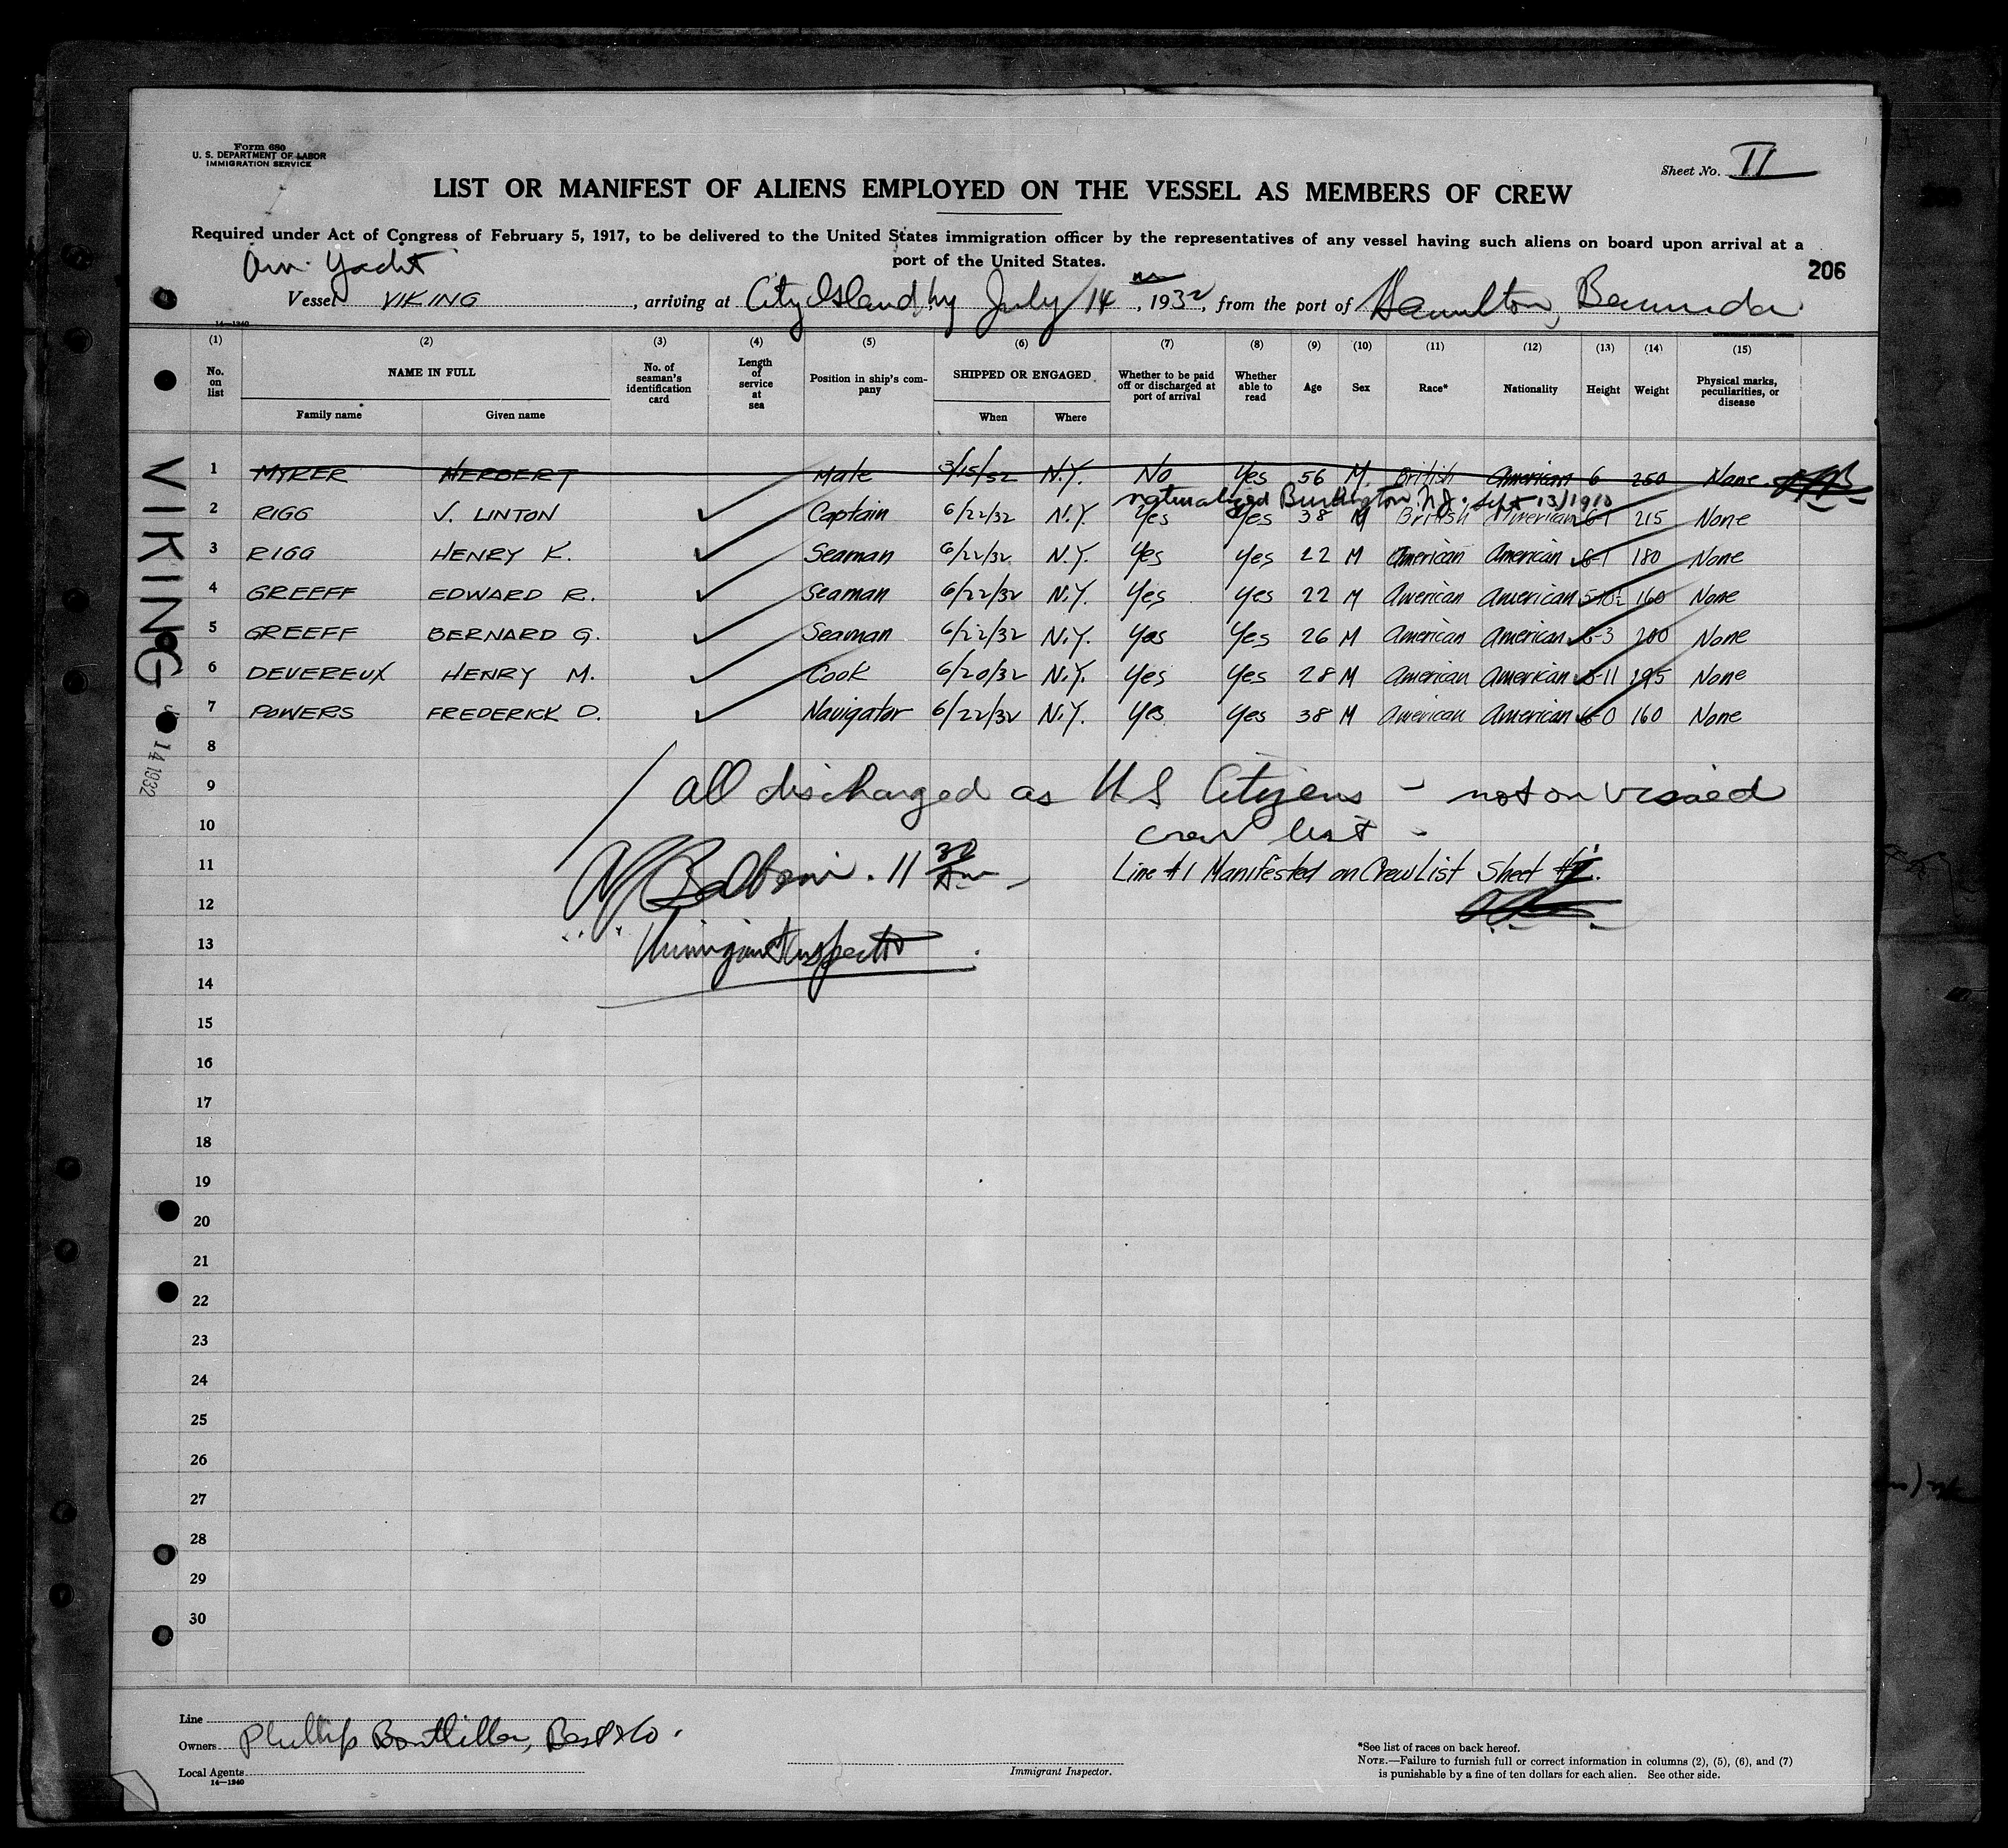 Form 680
U. S. DEPARTMENT OF LABOR
IMMIGRATION SERVICE
Sheet No. II
LIST OR MANIFEST OF ALIENS EMPLOYED ON THE VESSEL AS MEMBERS OF CREW
Required under Act of Congress of February 5, 1917, to be delivered to the United States immigration officer by the representatives of any vessel having such aliens on board upon arrival at a
port of the United States.
206
Am. Yacht
Vessel VIKING, arriving at City Island, Ny July 14, 1932, from the port of Hamilton, Bermuda
14—1240
(1) (2) (3) (4) (5) (6) (7) (8) (9) (10) (11) (12) (13) (14) (15)
No. on list NAME IN FULL No. of seaman's identification card Length of service at sea Position in ship's company SHIPPED OR ENGAGED Whether to be paid off or discharged at port of arrival Whether able to read Age Sex Race* Nationality Height Weight Physical marks, peculiarities, or disease
Family name Given name When Where
1 MYRER HERBERT Mate 3/15/32 N.Y. No Yes 56 M. British American 6 250 None
naturalized Burlington, N.J. Sept 13/1910
2 RIGG V. LINTON Captain 6/22/32 N.Y. Yes Yes 38 M British American 6-1 215 None
3 RIGG HENRY K. Seaman 6/22/32 N.Y. Yes Yes 22 M American American 6-1 180 None
4 GREEFF EDWARD R. Seaman 6/22/32 N.Y. Yes Yes 22 M American American 5-10½ 160 None
5 GREEFF BERNARD G. Seaman 6/22/32 N.Y. Yes Yes 26 M American American 6-3 200 None
6 DEVEREUX HENRY M. Cook 6/20/32 N.Y. Yes Yes 28 M American American 5-11 195 None
7 POWERS FREDERICK D. Navigator 6/22/32 N.Y. Yes Yes 38 M American American 6-0 160 None
8
VIKING
14 1932
9 All discharged as U S Citizens - not on visaed
10 crew list -
11 11 30 Am - Line #1 Manifested on Crew List Sheet #1.
12
13 Immigrant Inspector
14
15
16
17
18
19
20
21
22
23
24
25
26
27
28
29
30
Line
Owners Phillip Boutillier, Best & Co.
Local Agents
14—1240
Immigrant Inspector.
*See list of races on back hereof.
NOTE.—Failure to furnish full or correct information in columns (2), (5), (6), and (7)
is punishable by a fine of ten dollars for each alien. See other side.